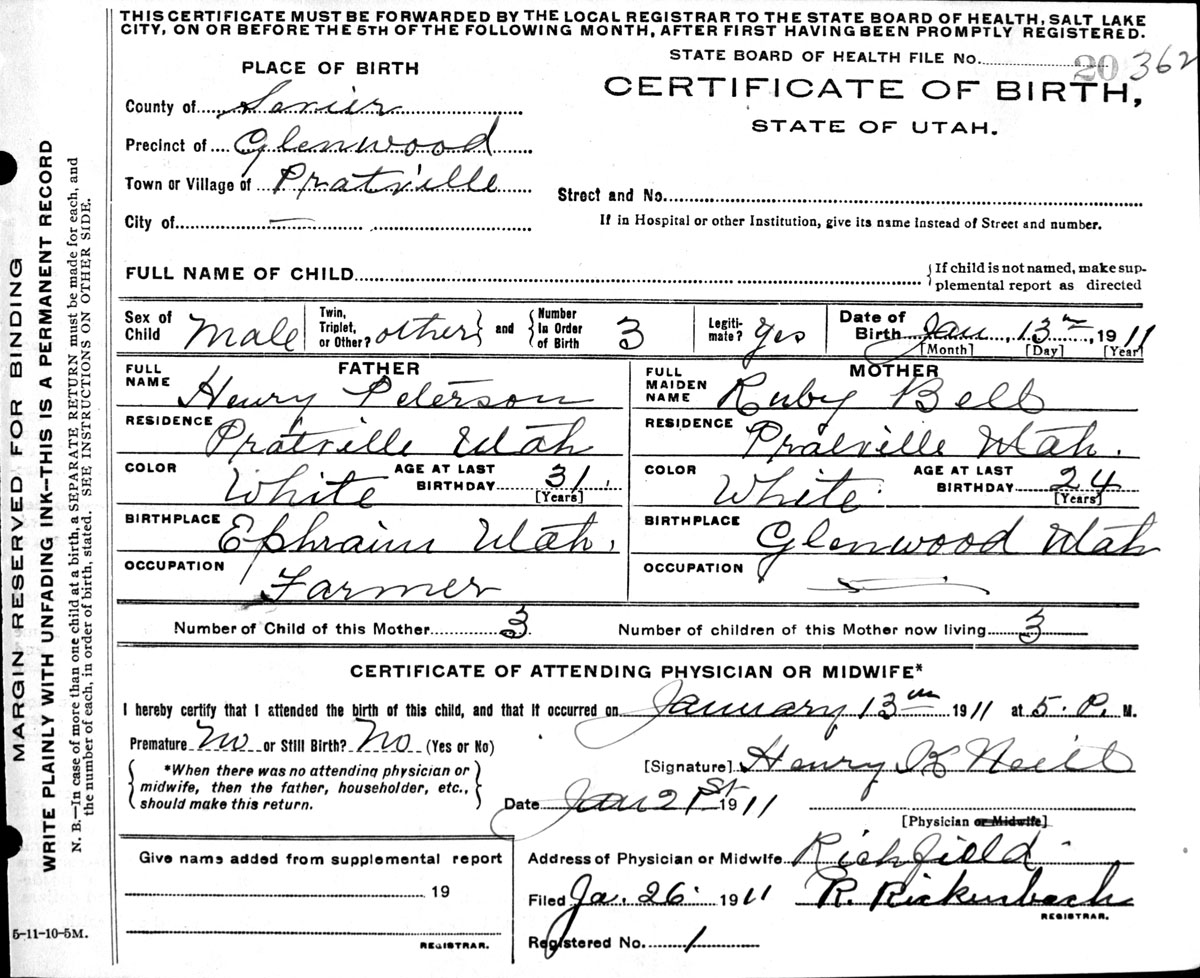 THIS CERTIFICATE MUST BE FORWARDED BY THE LOCAL REGISTRAR TO THE STATE BOARD OF HEALTH, SALT LAKE
CITY, ON OR BEFORE THE 5TH OF THE FOLLOWING MONTH, AFTER FIRST HAVING BEEN PROMPTLY REGISTERED.
STATE BOARD OF HEALTH FILE No. 20 362
CERTIFICATE OF BIRTH,
STATE OF UTAH.
PLACE OF BIRTH
County of Sevier
Precinct of Glenwood
Town or Village of Pratville
City of —
Street and No.
If in Hospital or other Institution, give its name Instead of Street and number.
FULL NAME OF CHILD
{If child is not named, make sup-
plemental report as directed
Sex of Child Male
Twin, Triplet, or Other? other} and {Number In Order of Birth 3
Legiti-mate? Yes
Date of Birth Jan, 13th, 1911
[Month] [Day] [Year]
FATHER
FULL NAME Henry Peterson
RESIDENCE Pratville Utah
COLOR White AGE AT LAST BIRTHDAY 31.
[Years]
BIRTHPLACE Ephraim Utah.
OCCUPATION Farmer
MOTHER
FULL MAIDEN NAME Ruby Bell
RESIDENCE Pratville Utah.
COLOR White AGE AT LAST BIRTHDAY 24
[Years]
BIRTHPLACE Glenwood Utah
OCCUPATION —
Number of Child of this Mother 3 Number of children of this Mother now living 3
CERTIFICATE OF ATTENDING PHYSICIAN OR MIDWIFE*
I hereby certify that I attended the birth of this child, and that it occurred on January 13th 1911 at 5. P. M.
Premature No or Still Birth? No (Yes or No)
{*When there was no attending physician or
midwife, then the father, householder, etc.,
should make this return.}
[Signature] Henry K Neill
Date Jan 21st 1911
[Physician or Midwife]
Address of Physician or Midwife Richfield
Filed Ja. 26 1911 R. Rickenbach
REGISTRAR.
Registered No. 1
Give name added from supplemental report
19
REGISTRAR.
5-11-10-5M.
MARGIN RESERVED FOR BINDING
WRITE PLAINLY WITH UNFADING INK—THIS IS A PERMANENT RECORD
N. B.—In case of more than one child at a birth, a SEPARATE RETURN must be made for each, and
the number of each, in order of birth, stated. SEE INSTRUCTIONS ON OTHER SIDE.